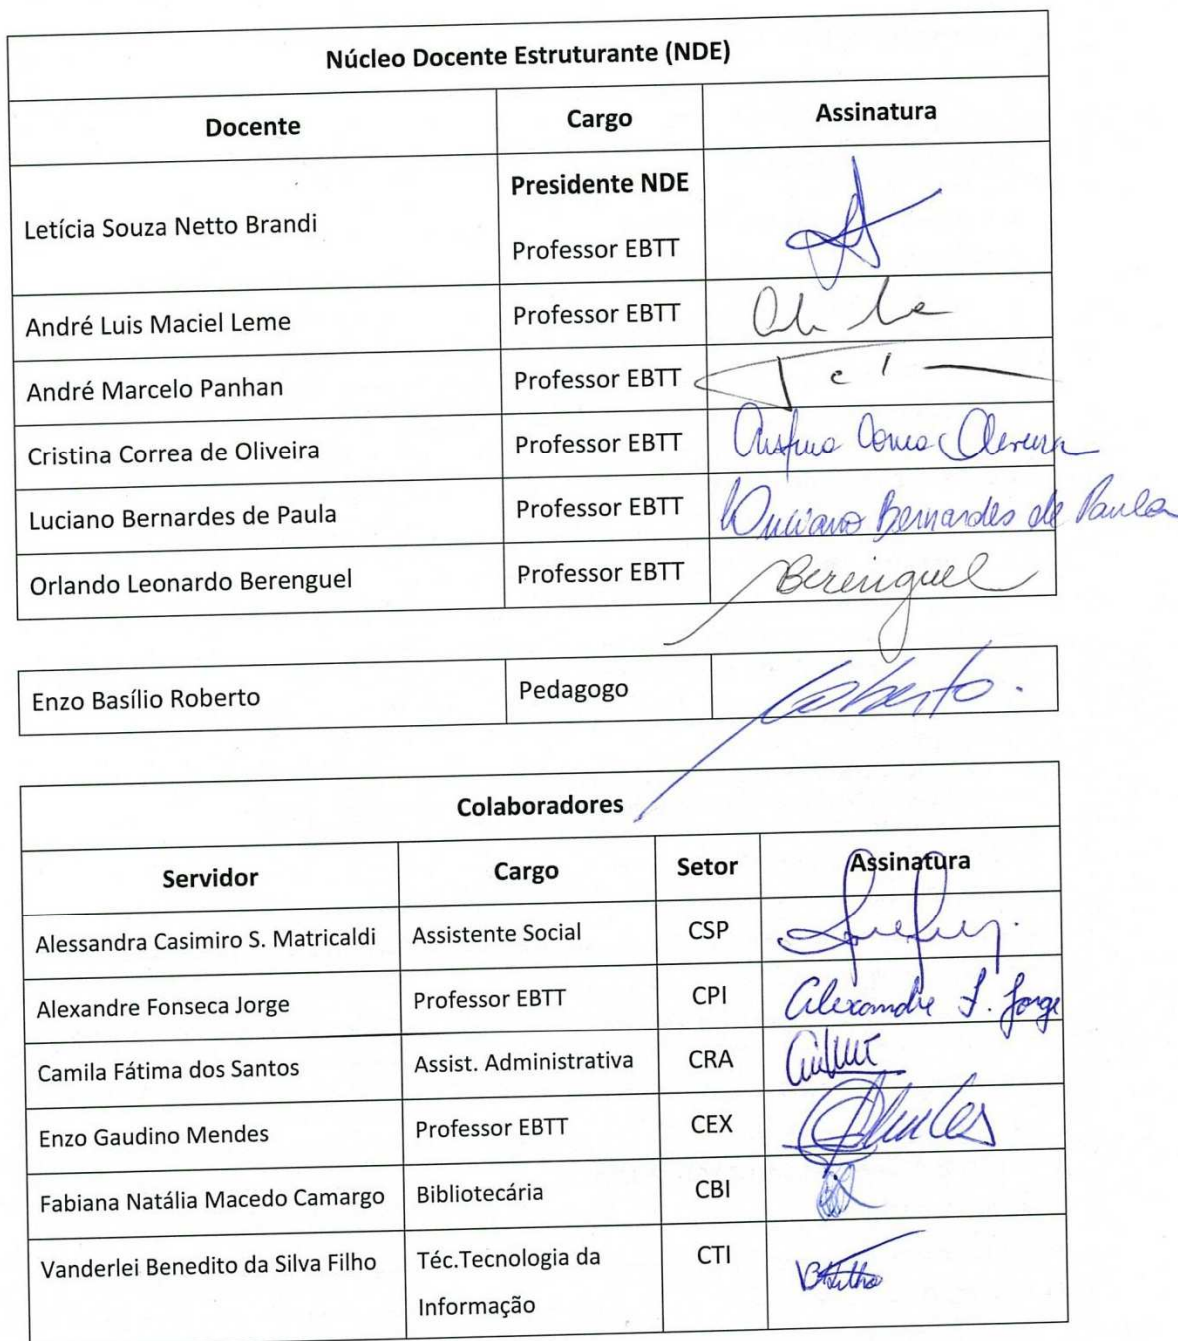 Núcleo Docente Estruturante (NDE)
Docente Cargo Assinatura
Letícia Souza Netto Brandi Presidente NDE
Professor EBTT
André Luis Maciel Leme Professor EBTT
André Marcelo Panhan Professor EBTT
Cristina Correa de Oliveira Professor EBTT
Luciano Bernardes de Paula Professor EBTT Luciano Bernardes de Paula
Orlando Leonardo Berenguel Professor EBTT Berenguel
Enzo Basílio Roberto Pedagogo Roberto.
Colaboradores
Servidor Cargo Setor Assinatura
Alessandra Casimiro S. Matricaldi Assistente Social CSP
Alexandre Fonseca Jorge Professor EBTT CPI Alexandre F. Jorge
Camila Fátima dos Santos Assist. Administrativa CRA
Enzo Gaudino Mendes Professor EBTT CEX
Fabiana Natália Macedo Camargo Bibliotecária CBI
Vanderlei Benedito da Silva Filho Téc.Tecnologia da CTI
Informação